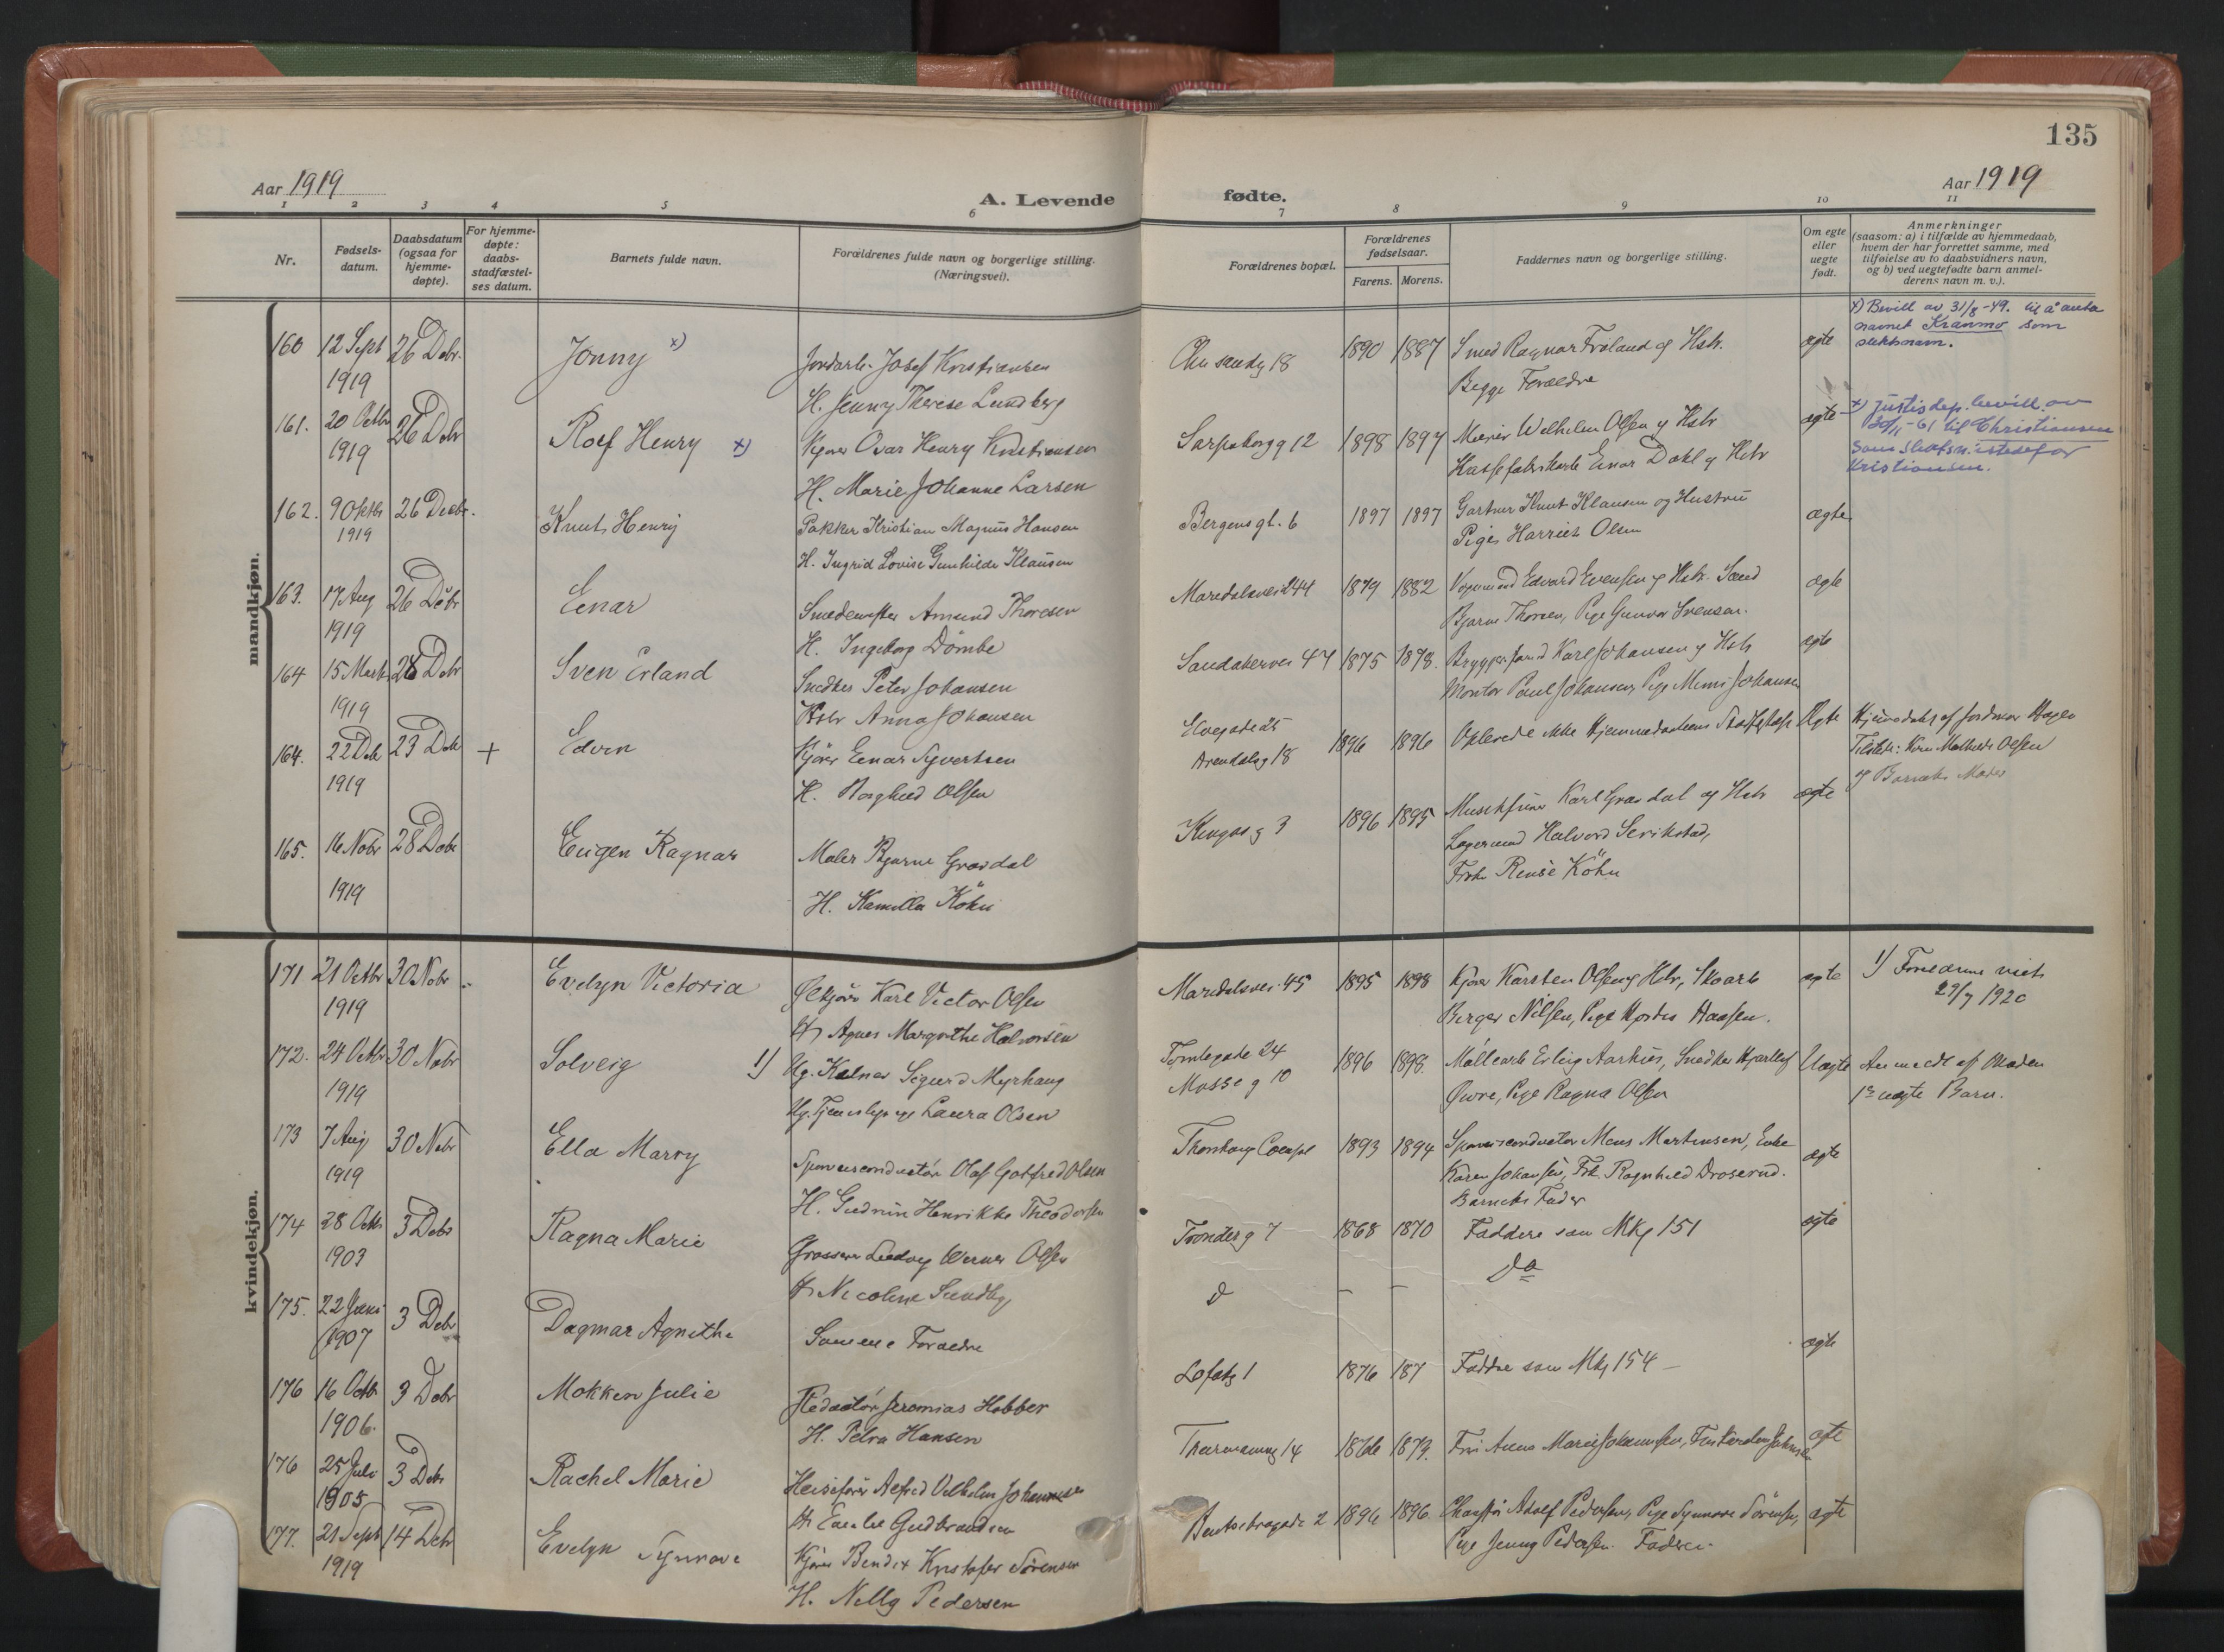 135
Aar 1919
A. Levende
fødte.
Aar 1919
1 2 3 4 5 6 7 8 9 10 11
Nr.
Fødsels-
datum.
Daabsdatum
(ogsaa for
hjemme-
døpte).
For hjemme-
døpte:
daabs-
stadfæstel-
ses datum.
Barnets fulde navn.
Forældrenes fulde navn og borgerlige stilling.
(Næringsvei).
Forældrenes bopæl.
Forældrenes
fødselsaar.
Farens. Morens.
Faddernes navn og borgerlige stilling.
Om egte
eller
uegte
født.
Anmerkninger
(saasom: a) i tilfælde av hjemmedaab,
hvem der har forrettet samme, med
tilføielse av to daabsvidners navn,
og b) ved uegtefødte barn anmel-
derens navn m. v.).
mandkjøn.
160 12 Sept 26 Debr. Jonny x) Jordarb. Josef Kristiansen 18 1890 1887 Smed Ragnar Frøland og Hstr. egte
1919 H. Jenny Therese Lundberg Begge Forældre
x) Bevill av 31/8-49. til å anta
navnet Kranmo som
slektsnavn.
161. 20 Octbr 26 Debr Rolf Henry x) Kjører Osvar Henry Kristiansen Sarpsborgg 12 1898 1897 Wilhelm Olsen og Hstr egte
1919 H. Marie Johanne Larsen Einar Dahl og Hstr
x) Justisdep. bevill. av
30/11-61 til Christiansen
som slektsn. istedefor
Kristiansen.
162. 9 Oktbr 26 Decbr. Knut Henry Pakker Kristian Magnus Hansen Bergensgt. 6 1897 1897 Gartner Knut Klausen og Hustru ægte
1919 H. Ingrid Lovise Gunhilde Klausen Pige Harriet Olsen
163. 17 Aug 26 Debr Einar Smedemester Amund Thoresen Maridalsvei 244 1879 1882 Vognmand Edvard Evensen og Hstr. egte
1919 H. Ingeborg Dømbe Bjarne Thoresen, Pige Gunvor Svensen.
164 15 Marts 28 Debr Sven Erland Snedker Peter Johansen Sandakervei 47 1875 1878. Karl Johansen og Hstr egte
1919 Hstr Anna Johansen Montør Paul Johansen, Pige Mimi Johansen
164. 22 Deb 23 Deb + Edvin Kjører Einar Syvertsen Elvegade 25 1896 1896 Oplevede ikke Hjemmedaabens Stadfestelse Egte
1919 H. Borghild Olsen Arendalsg 18
Hjemmedøbt af Jordmor Hagen
Tilstede: Kone Mathilde Olsen
og Barnets Moder
165. 16 Nobr 28 Debr Eugen Ragnar Maler Bjarne Grøsdal Kingosg 3 1896 1895 Karl Grøsdal og Hstr egte
1919 H. Kamilla Köhn Lagermand Halvord Serikstad,
Frk. Köhn
kvindekjøn.
171 21 Octbr 30 Nobr Evelyn Victoria Ølkjører Karl Victor Olsen Maridalsvei 45 1895 1898 Kjører Karsten Olsen og Hstr, Skoarb egte
1919 H. Agnes Margrethe Halvorsen Birger Nilsen, Pige Hjordis Haasen.
1) Forældrene viet
29/7 1920
172. 24 Octbr 30 Nobr Solveig 1) Ug. Kelner Sigurd Myrhaug Tomtegade 24 1896 1898. Erling Aarhus, Snedker Hjallef Uegte
1919 Ug. Tjenestepige Laura Olsen Mosseg 10 Øvre, Pige Ragna Olsen
Anmeldt af Moderen
1ste uegte Barn.
173 7 Aug 30 Nobr Ella Marry Sporveisconductør Olaf Gotfred Olsen 1893 1894 Sporveisconductør Mons Martinsen, Enke egte
1919 H. Gudrun Henrikke Theodorsen Karen Johansen, Frk. Ragnhild Droserud.
Barnets Fader
174 28 Octb 3 Debr Ragna Marie Grosserer Ludvig Werner Olsen Trønderg 7 1868 1870 Faddere som Mkj 151 egte
1903 H. Nicoline Sundby do
175. 22 Juni 3 Debr Dagmar Agnethe Samme Forældre d — —
1907
176 16 Octb 3 Debr Mokken Julie Redactør Jeremias Hobber Lofotg 1 1876 187 Faddre som Mkj 154 — egte
1906. H. Petra Hansen
176 25 Juli 3 Debr Rachel Marie Heisefører Alfred Vilhelm Johannesen 14 1876 1879. Fru Anna Marie Johannesen, egte
1905 H. Emilie Gudbrandsen
177. 21 Sept 14 Debr Evelyn Synnøve Kjører Bendix Kristofer Sørensen Bentsebrogade 2 1896 1896. Chauffør Adolf Pedersen, Pige Synnøve Sørensen, egte
1919 H. Nelly Pedersen Pige Jenny Pedersen. Faderen.